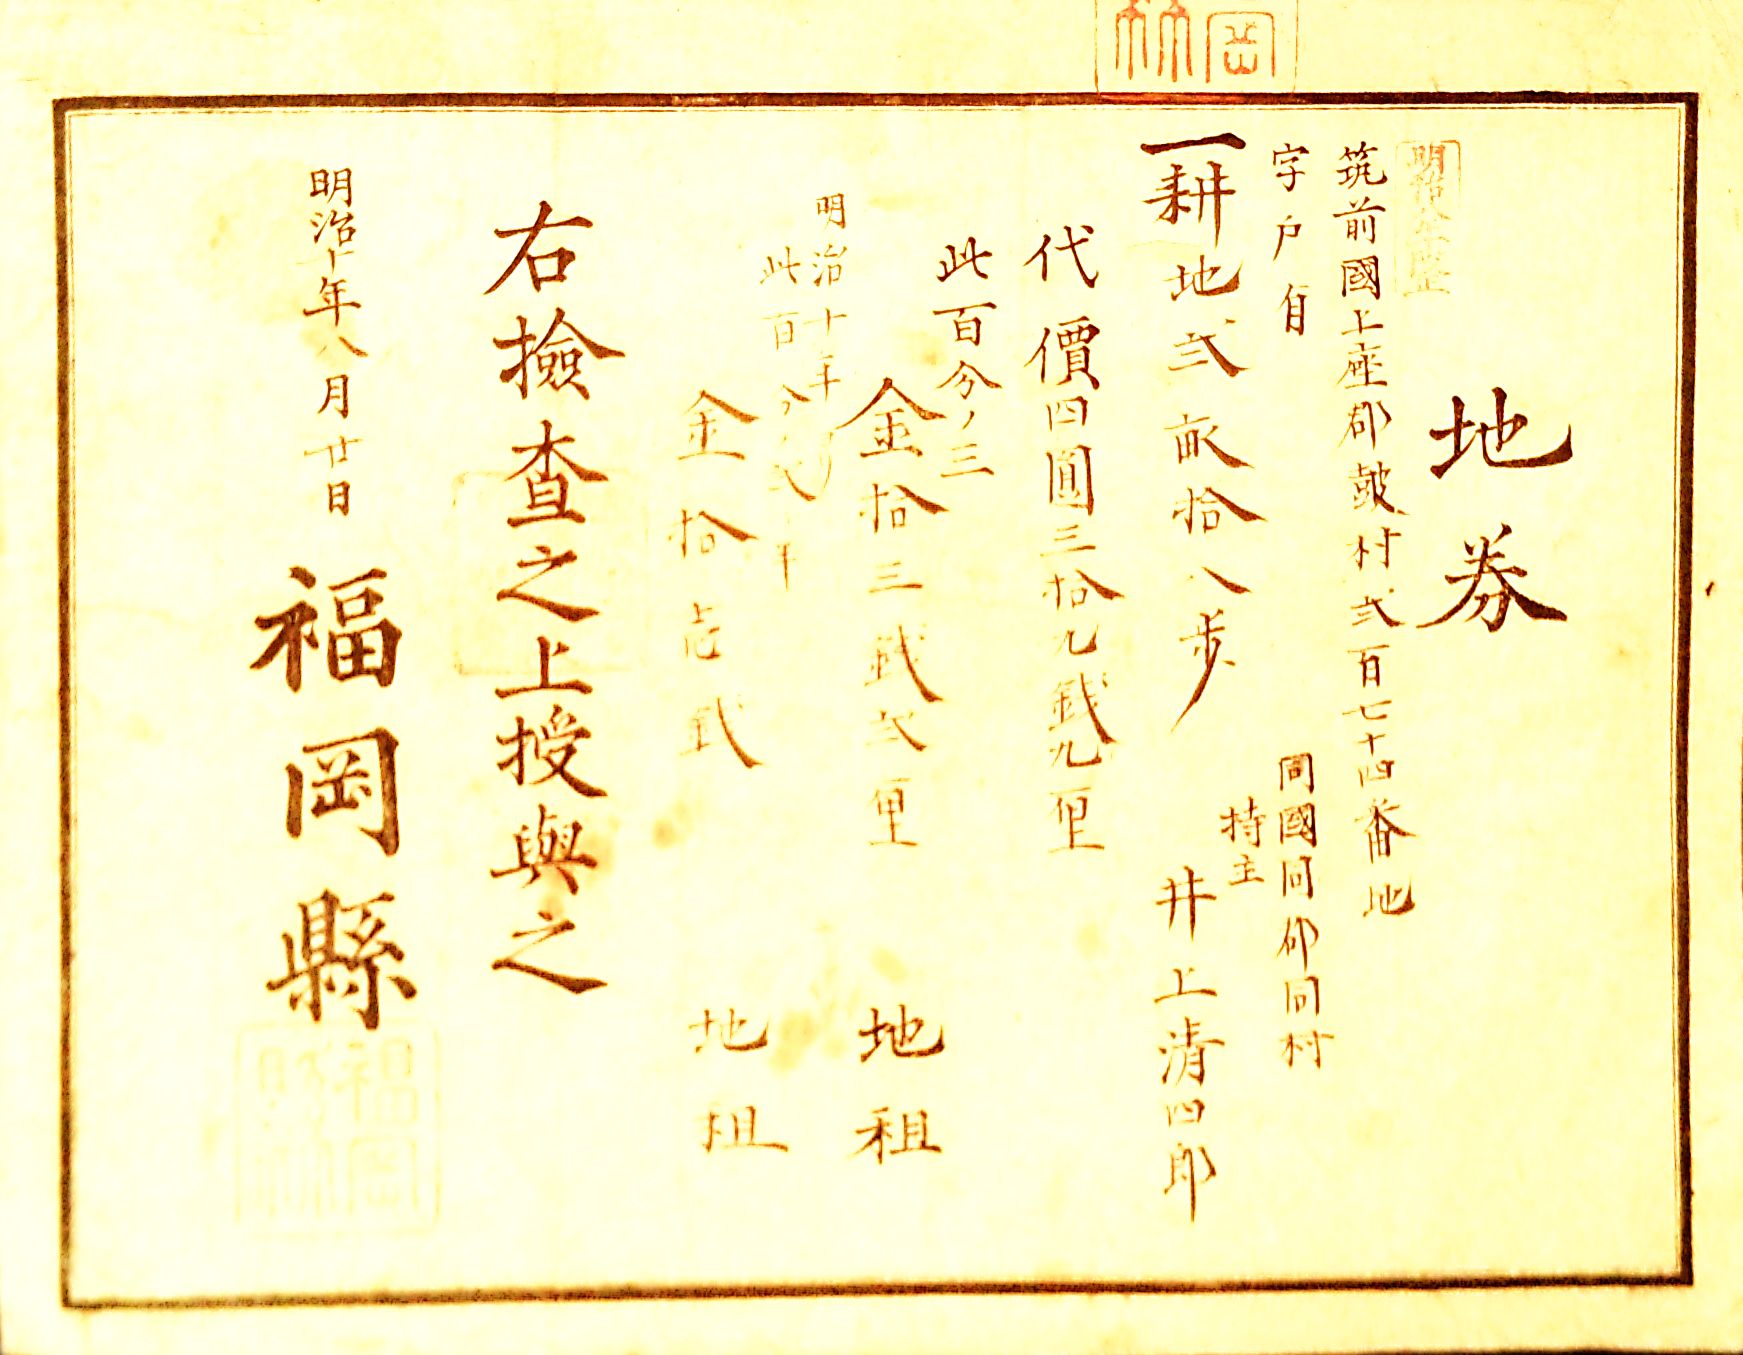 地券
筑前國上座郡鼓村弐百七十四番地
字戸
同國同郡同村
持主
井上清四郎
一耕地弐畝拾八歩
代價四圓三拾九銭九厘
此百分ノ三
金拾三銭弐厘
地租
明治十年ヨリ
此百分ノ弐ケ半
金拾壱銭
地租
右撿查之上授與之
明治十年八月廿日
福岡縣